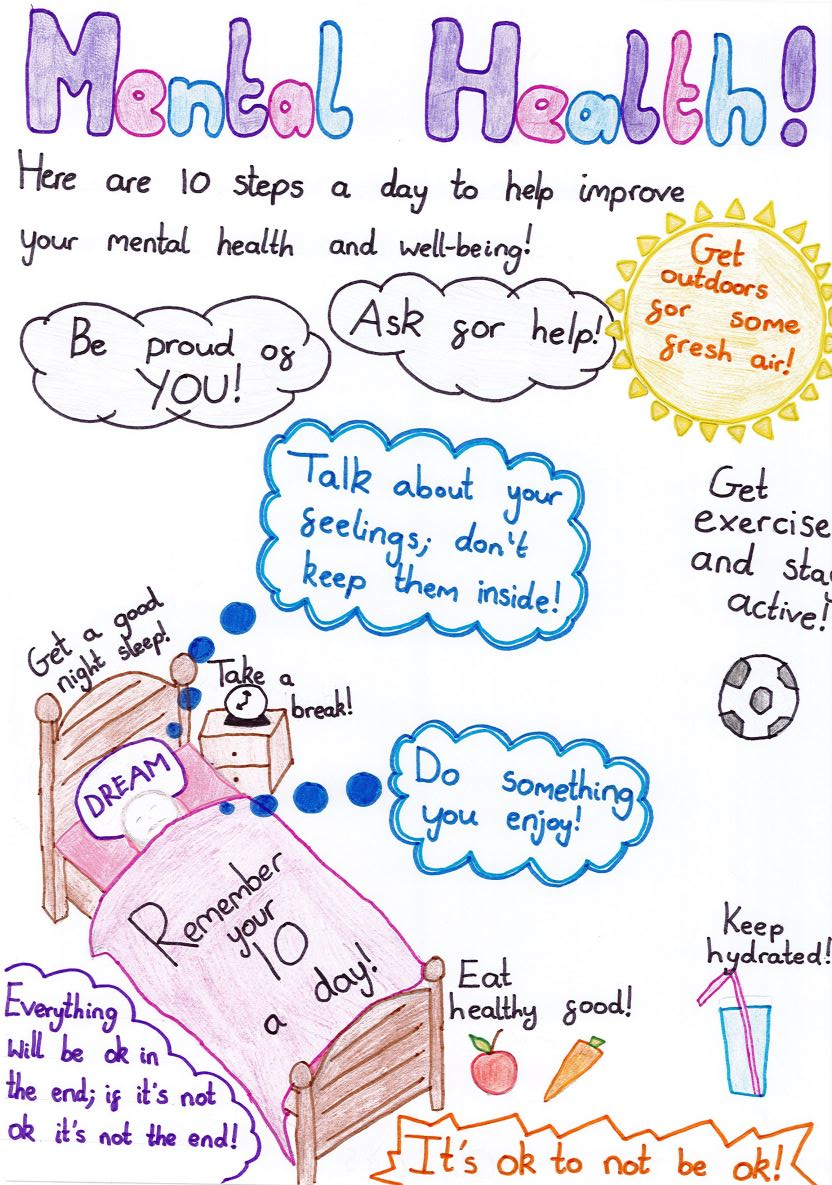 Mental Health!
Here are 10 steps a day to help improve
your mental health and well-being!
Be proud of
YOU!
Ask for help!
Get
outdoors
for some
fresh air!
Talk about your
feelings; don't
keep them inside!
Get
exercise
and stay
active!
Get a good
night sleep!
Take a
break!
DREAM
Do something
you enjoy!
Remember
your
10
a day!
Keep
hydrated!
Eat
healthy food!
Everything
will be ok in
the end; if it's not
ok it's not the end!
It's ok to not be ok!